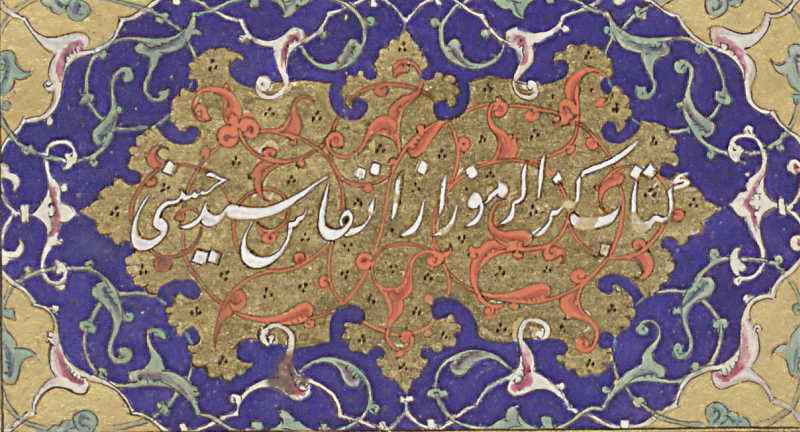 کتاب کنز الرموز از انفاس سید حسینی